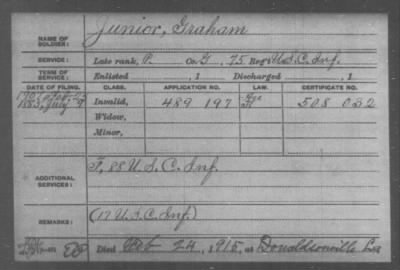 NAME OF SOLDIER: Junior, Graham
SERVICE: Late rank, P. Co. G, 75 Reg't U.S.C. Inf.
TERM OF SERVICE: Enlisted , 1 Discharged , 1
DATE OF FILING. CLASS. APPLICATION NO. LAW. CERTIFICATE NO.
1883, July 9 Invalid, 489 197 508 032
Widow,
Minor,
ADDITIONAL SERVICES: F, 88 U.S.C. Inf.
REMARKS: (17 U.S.C. Inf.)
Died Feb 24, 1915, at Donaldsonville La